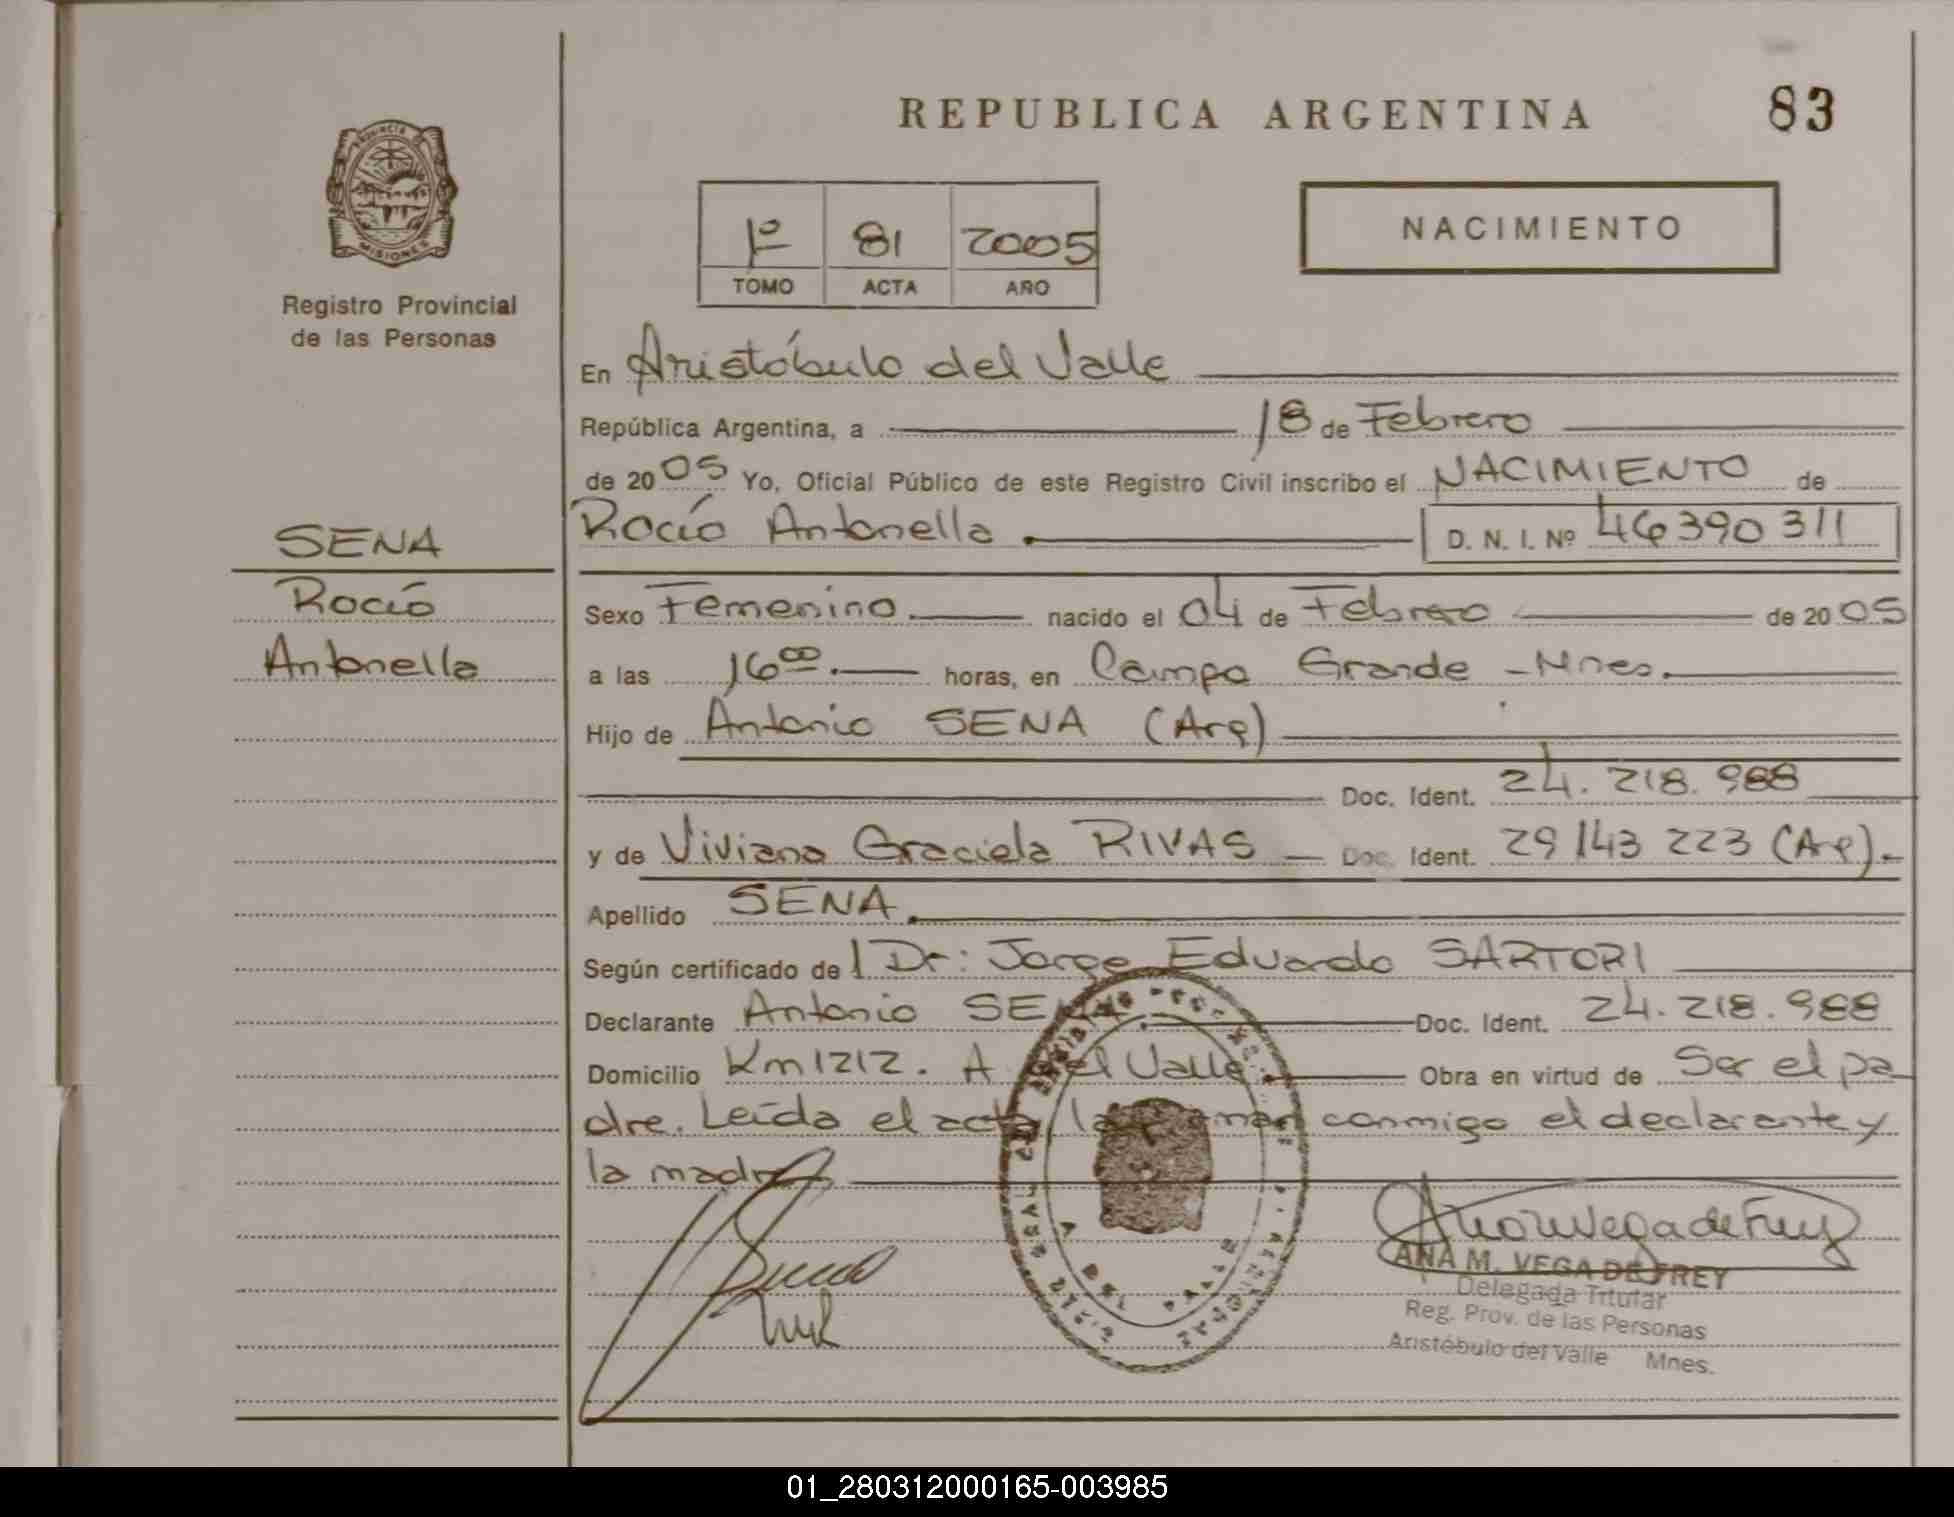 REPUBLICA ARGENTINA
83
PROVINCIA DE
MISIONES
Registro Provincial
de las Personas
1º 81 2005
TOMO ACTA AÑO
NACIMIENTO
En Aristóbulo del Valle
República Argentina, a 18 de Febrero
de 2005 Yo, Oficial Público de este Registro Civil inscribo el NACIMIENTO de
Rocío Antonella D. N. I. Nº 46390311
SENA
Rocío
Antonella
Sexo Femenino nacido el 04 de Febrero de 2005
a las 16 00 horas, en Campo Grande - Mnes.
Hijo de Antonio SENA (Arg)
Doc. Ident. 24.218.988
y de Viviana Graciela RIVAS Doc. Ident. 29143223 (Arg).
Apellido SENA
Según certificado de l Dr: Jorge Eduardo SARTORI
Declarante Antonio SENA Doc. Ident. 24.218.988
Domicilio Km 1212. A. del Valle Obra en virtud de Ser el pa
dre. Leída el acta la firman conmigo el declarante y
la madre
ANA M. VEGA DE FREY
Delegada Titular
Reg. Prov. de las Personas
Aristóbulo del Valle Mnes.
01_280312000165-003985